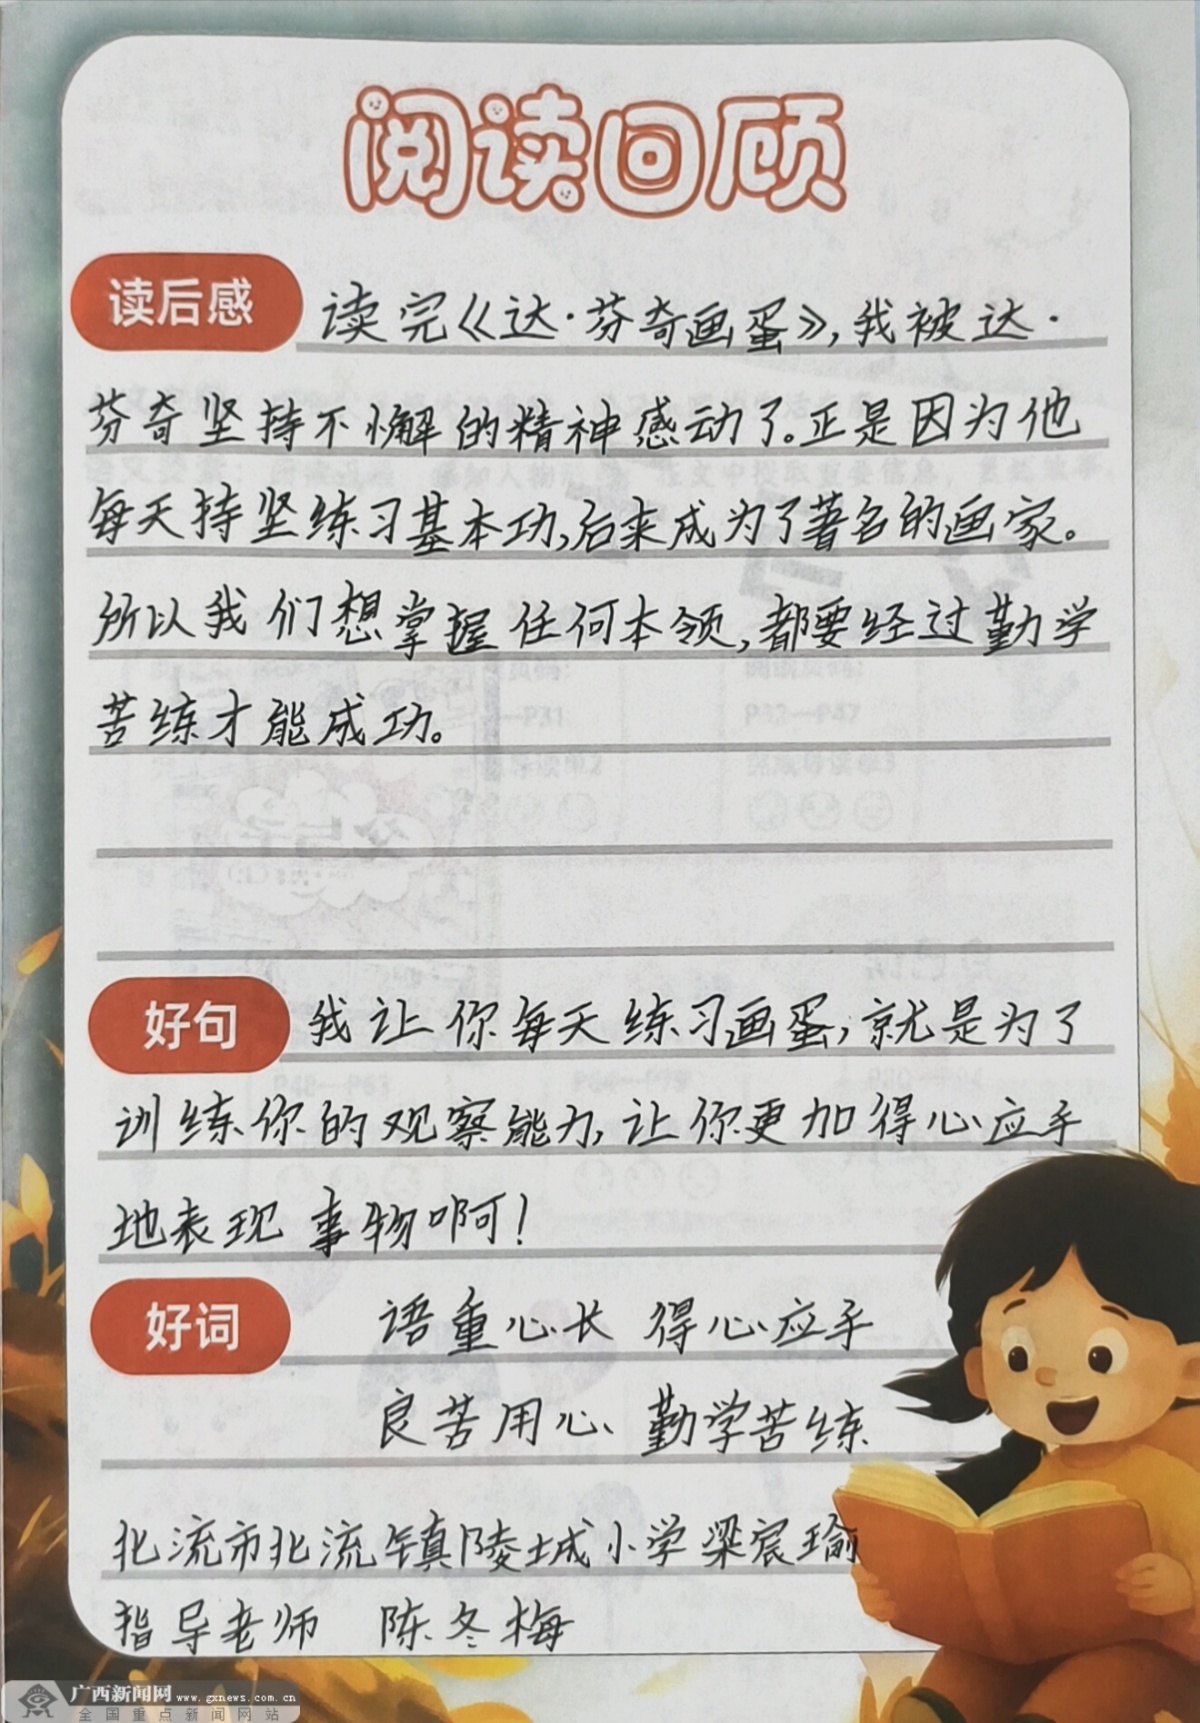 阅读回顾
读后感 读完《达·芬奇画蛋》,我被达·
芬奇坚持不懈的精神感动了。正是因为他
每天持坚练习基本功,后来成为了著名的画家。
所以我们想掌握任何本领,都要经过勤学
苦练才能成功。
好句 我让你每天练习画蛋,就是为了
训练你的观察能力,让你更加得心应手
地表现事物啊!
好词 语重心长 得心应手
良苦用心 勤学苦练
北流市北流镇陵城小学梁宸瑜
指导老师 陈冬梅
广西新闻网 www.gxnews.com.cn
全国重点新闻网站